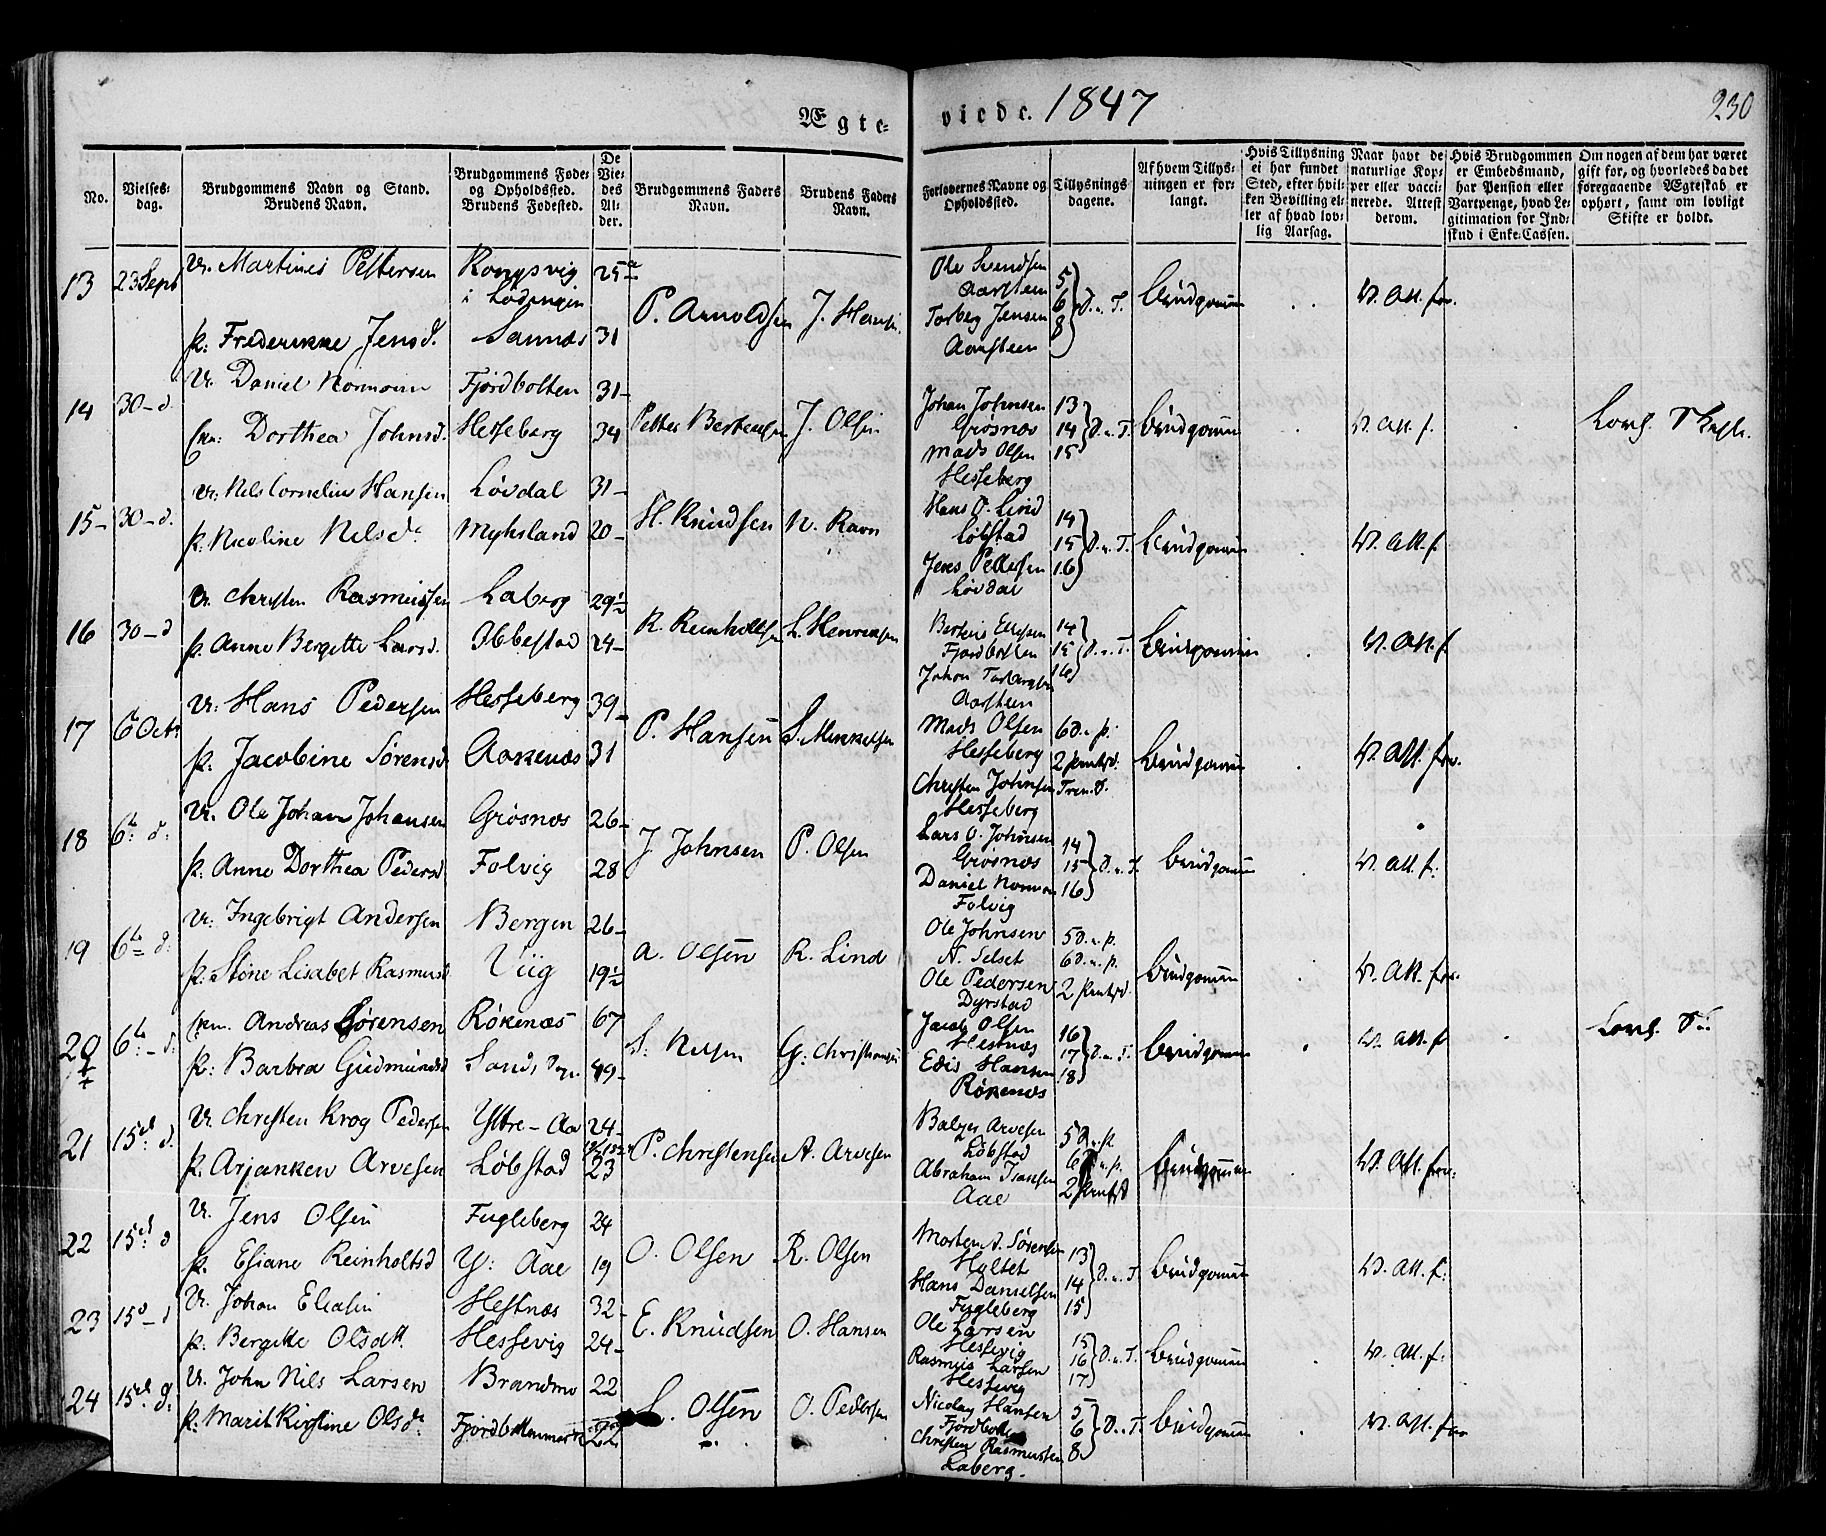 Ægte=
viede. 1847
230
No.
Vielses-
dag.
Brudgommens Navn og Stand.
Brudens Navn.
Brudgommens Føde-
og Opholdssted.
Brudens Fødested.
De
Vie-
des
Al-
der.
Brudgommens Faders
Navn.
Brudens Faders
Navn.
Forlovernes Navne og
Opholdssted.
Tillysnings
dagene.
Af hvem Tillys-
ningen er for-
langt.
Hvis Tillysning
ei har fundet
Sted, efter hvil-
ken Bevilling el-
ler af hvad lov-
lig Aarsag.
Naar havt de
naturlige Kop-
per eller vacci-
nerede. Attest
derom.
Hvis Brudgommen
er Embedsmand,
har Pension eller
Vartpenge, hvad Le-
gitimation for Ind-
skud i Enke-Cassen.
Om nogen af dem har været
gift før, og hvorledes da det
foregaaende Ægteskab er
ophørt, samt om lovligt
Skifte er holdt.
13 23 Sept
U. Martines Pettersen
p: Frederikke Jensd.
Kongsvig
i Lødingen
Sannæs
25
31
P. Arnoldsen
J. Hansen
Ole Svendsen
Aarsteen
Torberg Jensen
Aarsteen
5
6
8
D. n. T.
Brudgommen
V. Att. fov.
14 30 - d.
U. Daniel Normann
Dorthea Johnsd.
Fjordbotten
Hesseberg
31
34
Petter Bertensen
J. Olsen
Johan Johnsen
Grøsnæs
Mads Olsen
Hesseberg
13
14
15
D. n. T.
Brudgommen
V. Att. f.
15 - 30 - d.
U. Nils Cornelius Hansen
p. Nicoline Nilsd.
Løvdal
Myhsland
31 -
20 -
H. Knudsen
N. Ravn
Hans O. Lind
Løbstad
Jens Pettersen
Løvdal
14
15
16
D. n. T.
Brudgommen
V. Att. f.
16 30 - d
U. Christen Rasmussen
p. Anne Bergitte Larsd.
Laberg
Ibbestad
29½
24 -
R. Reinholtsen
L. Henriksen
Bertius Ellesen
Fjordbotten
Johan Torbergsen
Aarsteen
14
15
16
D. n. T.
Brudgommen
V. Att. f
17 6 Octr
U. Hans Pedersen
p. Jacobine Sørensd
Hesseberg
Aakenæs
39 -
31
P. Hansen
S. Mikkelsen
Mads Olsen
Hesseberg
Christen Johnsen
Hesseberg
6 D. n. p.
Brudgommen
V. Att. fov.
18 6te d.
U. Ole Johan Johansen
p. Anne Dorthea Pedersd
Grøsnæs
Folvig
26 -
28
J. Johnsen
P. Olsen
Lars O. Johnsen
Grøsnæs
Daniel Norman
Folvig
14
15
16
D. n. T.
Brudgommen
V. Att. f.
19 6te d.
U. Ingebrigt Andersen
p. Stine Lisabet Rasmusd
Bergen
Viig
26 -
19½
A. Olsen
R. Lind
Ole Johnsen
N. Selset
Ole Pedersen
Dyrstad
5 D. n. p.
6 D. n. p.
Brudgommen
V. Att. fov.
20 6te - d.
Andreas Sørensen
p: Barbra Gudmundsd
Røkenæs
67
49 -
S. Nilsen
G. Christiansen
Jacob Olsen
Hestnæs
Edis Hansen
Røkenæs
16
17
18
D. n. T.
Brudgommen
V. Att. f
21 15de d.
U. Christen Krog Pedersen
p. Arjanken Arvesen
Yttre - Aa
Løbstad
24 -
23
P. Christensen
A. Arvesen
Balzer Arvesen
Løbstad
Abraham Isansen
Aae
Brudgommen
V. Att. fov.
22 15de d
U. Jens Olsen
p. Esiane Reinholtsd
Fugleberg
Y: Aae
24
19
O. Olsen
R. Olsen
Morten A. Sørensen
Holtet
Hans Danielsen
Fugleberg
13
14
15
D. n. T.
Brudgommen
V. Att. f.
23 15d - d
U. Johan Eliasen
p. Bergitte Olsdtr.
Hestnæs
Hessevig
32 -
24 -
E. Knudsen
O. Hansen
Ole Larsen
Hessevig
Rasmus Larsen
Hessevig
15
16
17
D. n. T.
Brudgommen
V. Att. f.
24 15de d.
U. John Nils Larsen
p. Marit Kirstine Olsdr
Brandmo
22
22
L. Olsen
O. Pedersen
Nicolay Hansen
Fjordbotten
Christen Rasmussen
Laberg.
5
6
8
D. n. T.
Brudgommen
V. Att. fov